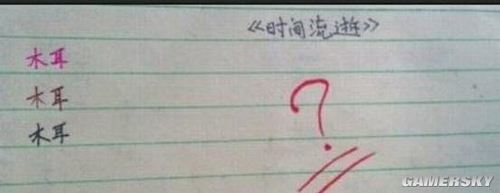 《时间流逝》
木耳
木耳
木耳
?
GAMERSKY